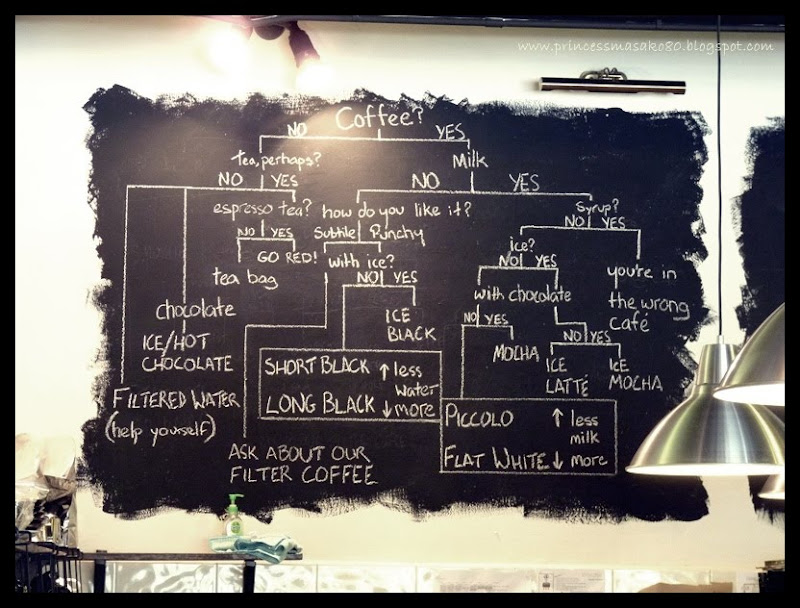 www.princessmasako80.blogspot.com
Coffee?
NO YES
Tea, perhaps?
Milk
NO YES
NO YES
espresso tea?
how do you like it?
Syrup?
NO YES
NO YES
Subtile Punchy
GO RED!
tea bag
with ice?
NO YES
ice?
NO YES
you're in
the wrong
café
chocolate
ICE/HOT
CHOCOLATE
ICE
BLACK
with chocolate
NO YES
NO YES
MOCHA
ICE
LATTÉ
ICE
MOCHA
FILTERED WATER
(help yourself)
SHORT BLACK ↑ less
water
LONG BLACK ↓ more
PICCOLO ↑ less
milk
FLAT WHITE ↓ more
ASK ABOUT OUR
FILTER COFFEE